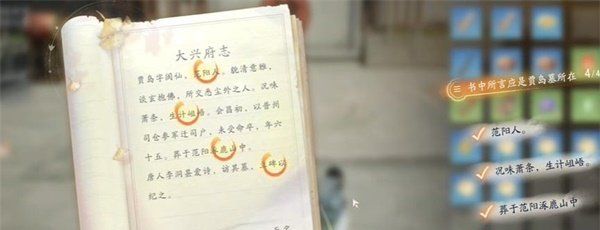 大兴府志
贾岛字阆仙,范阳人。貌清意雅,
谈玄抱佛,所交悉尘外之人。况味
萧条,生计岨峿。会昌初,以普州
司仓参军迁司户,未受命卒,年六
十五。葬于范阳涿鹿山中。
唐人李洞慕爱诗,访其墓,立碑以
纪之。
书中所言应是贾岛墓所在 4/4
范阳人。
况味萧条,生计岨峿。
葬于范阳涿鹿山中